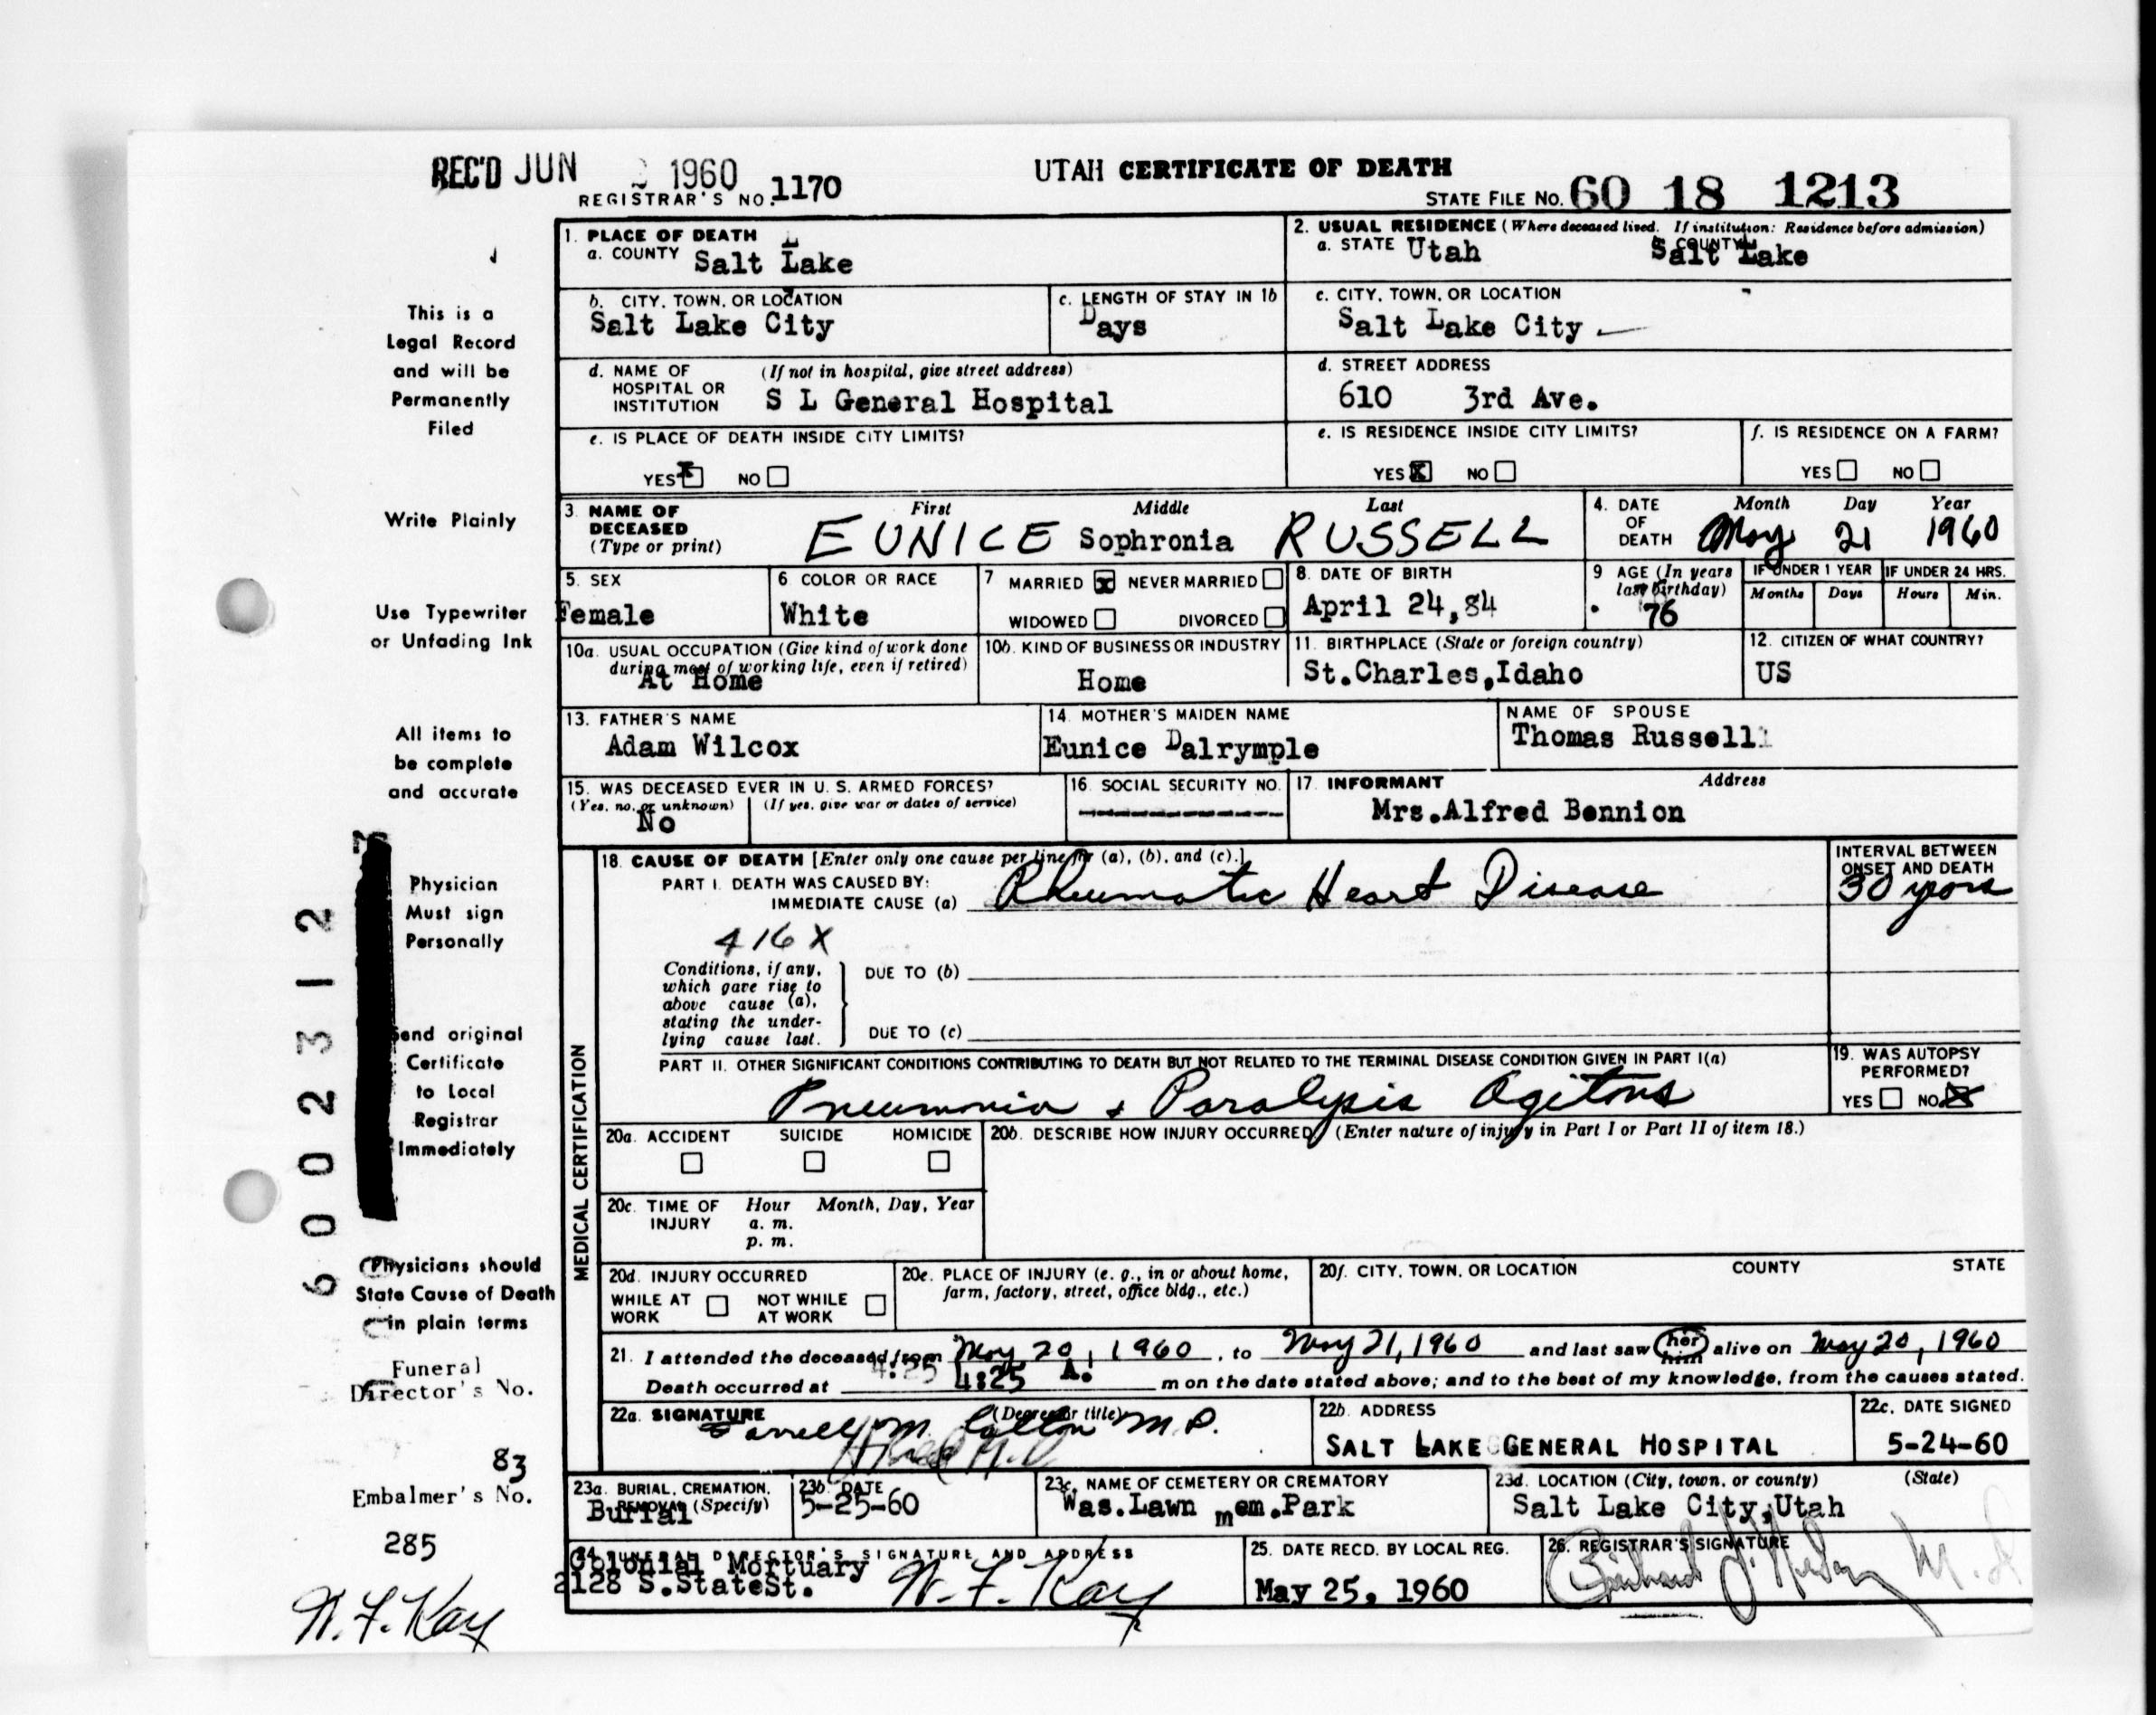 REC'D JUN 1960
REGISTRAR'S NO. 1170
UTAH CERTIFICATE OF DEATH
STATE FILE NO. 60 18 1213
This is a
Legal Record
and will be
Permanently
Filed
Write Plainly
Use Typewriter
or Unfading Ink
All items to
be complete
and accurate
Physician
Must sign
Personally
Send original
Certificate
to Local
Registrar
Immediately
Physicians should
State Cause of Death
in plain terms
Funeral
Director's No.
83
Embalmer's No.
285
N. F. Kay
6002312
1. PLACE OF DEATH
a. COUNTY Salt Lake
2. USUAL RESIDENCE (Where deceased lived. If institution: Residence before admission)
a. STATE Utah COUNTY Salt Lake
b. CITY, TOWN, OR LOCATION
Salt Lake City
c. LENGTH OF STAY IN 1b
Days
c. CITY, TOWN, OR LOCATION
Salt Lake City
d. NAME OF HOSPITAL OR INSTITUTION (If not in hospital, give street address)
S L General Hospital
d. STREET ADDRESS
610 3rd Ave.
e. IS PLACE OF DEATH INSIDE CITY LIMITS?
YES X NO
e. IS RESIDENCE INSIDE CITY LIMITS?
YES X NO
f. IS RESIDENCE ON A FARM?
YES NO
3. NAME OF DECEASED (Type or print)
First Middle Last
EUNICE Sophronia RUSSELL
4. DATE OF DEATH Month Day Year
May 21 1960
5. SEX
Female
6. COLOR OR RACE
White
7 MARRIED X NEVER MARRIED
WIDOWED DIVORCED
8. DATE OF BIRTH
April 24,84
9 AGE (In years last birthday)
76
IF UNDER 1 YEAR IF UNDER 24 HRS.
Months Days Hours Min.
10a. USUAL OCCUPATION (Give kind of work done during most of working life, even if retired)
At Home
10b. KIND OF BUSINESS OR INDUSTRY
Home
11. BIRTHPLACE (State or foreign country)
St.Charles,Idaho
12. CITIZEN OF WHAT COUNTRY?
US
13. FATHER'S NAME
Adam Wilcox
14. MOTHER'S MAIDEN NAME
Eunice Dalrymple
NAME OF SPOUSE
Thomas Russell
15. WAS DECEASED EVER IN U. S. ARMED FORCES?
(Yes, no, or unknown) (If yes, give war or dates of service)
No
16. SOCIAL SECURITY NO.
17. INFORMANT Address
Mrs.Alfred Bennion
MEDICAL CERTIFICATION
18. CAUSE OF DEATH [Enter only one cause per line for (a), (b), and (c).]
PART I. DEATH WAS CAUSED BY:
IMMEDIATE CAUSE (a) Rheumatic Heart Disease
INTERVAL BETWEEN ONSET AND DEATH
30 years
416 X
Conditions, if any, which gave rise to above cause (a), stating the underlying cause last.
DUE TO (b)
DUE TO (c)
PART II. OTHER SIGNIFICANT CONDITIONS CONTRIBUTING TO DEATH BUT NOT RELATED TO THE TERMINAL DISEASE CONDITION GIVEN IN PART I(a)
Pneumonia + Paralysis Agitans
19. WAS AUTOPSY PERFORMED?
YES NO X
20a. ACCIDENT SUICIDE HOMICIDE
20b. DESCRIBE HOW INJURY OCCURRED (Enter nature of injury in Part I or Part II of item 18.)
20c. TIME OF INJURY Hour Month, Day, Year
a. m.
p. m.
20d. INJURY OCCURRED
WHILE AT WORK NOT WHILE AT WORK
20e. PLACE OF INJURY (e. g., in or about home, farm, factory, street, office bldg., etc.)
20f. CITY, TOWN, OR LOCATION COUNTY STATE
21. I attended the deceased from May 20, 1960, to May 21, 1960 and last saw her him alive on May 20, 1960
Death occurred at 4:25 A. m on the date stated above; and to the best of my knowledge, from the causes stated.
22a. SIGNATURE (Degree or title)
M. M.D.
22b. ADDRESS
SALT LAKE GENERAL HOSPITAL
22c. DATE SIGNED
5-24-60
23a. BURIAL, CREMATION, REMOVAL (Specify)
Burial
23b. DATE
5-25-60
23c. NAME OF CEMETERY OR CREMATORY
Was.Lawn mem.Park
23d. LOCATION (City, town, or county) (State)
Salt Lake City,Utah
24. FUNERAL DIRECTOR'S SIGNATURE AND ADDRESS
Colonial Mortuary
2128 S.StateSt. N. F. Kay
25. DATE RECD. BY LOCAL REG.
May 25, 1960
26. REGISTRAR'S SIGNATURE